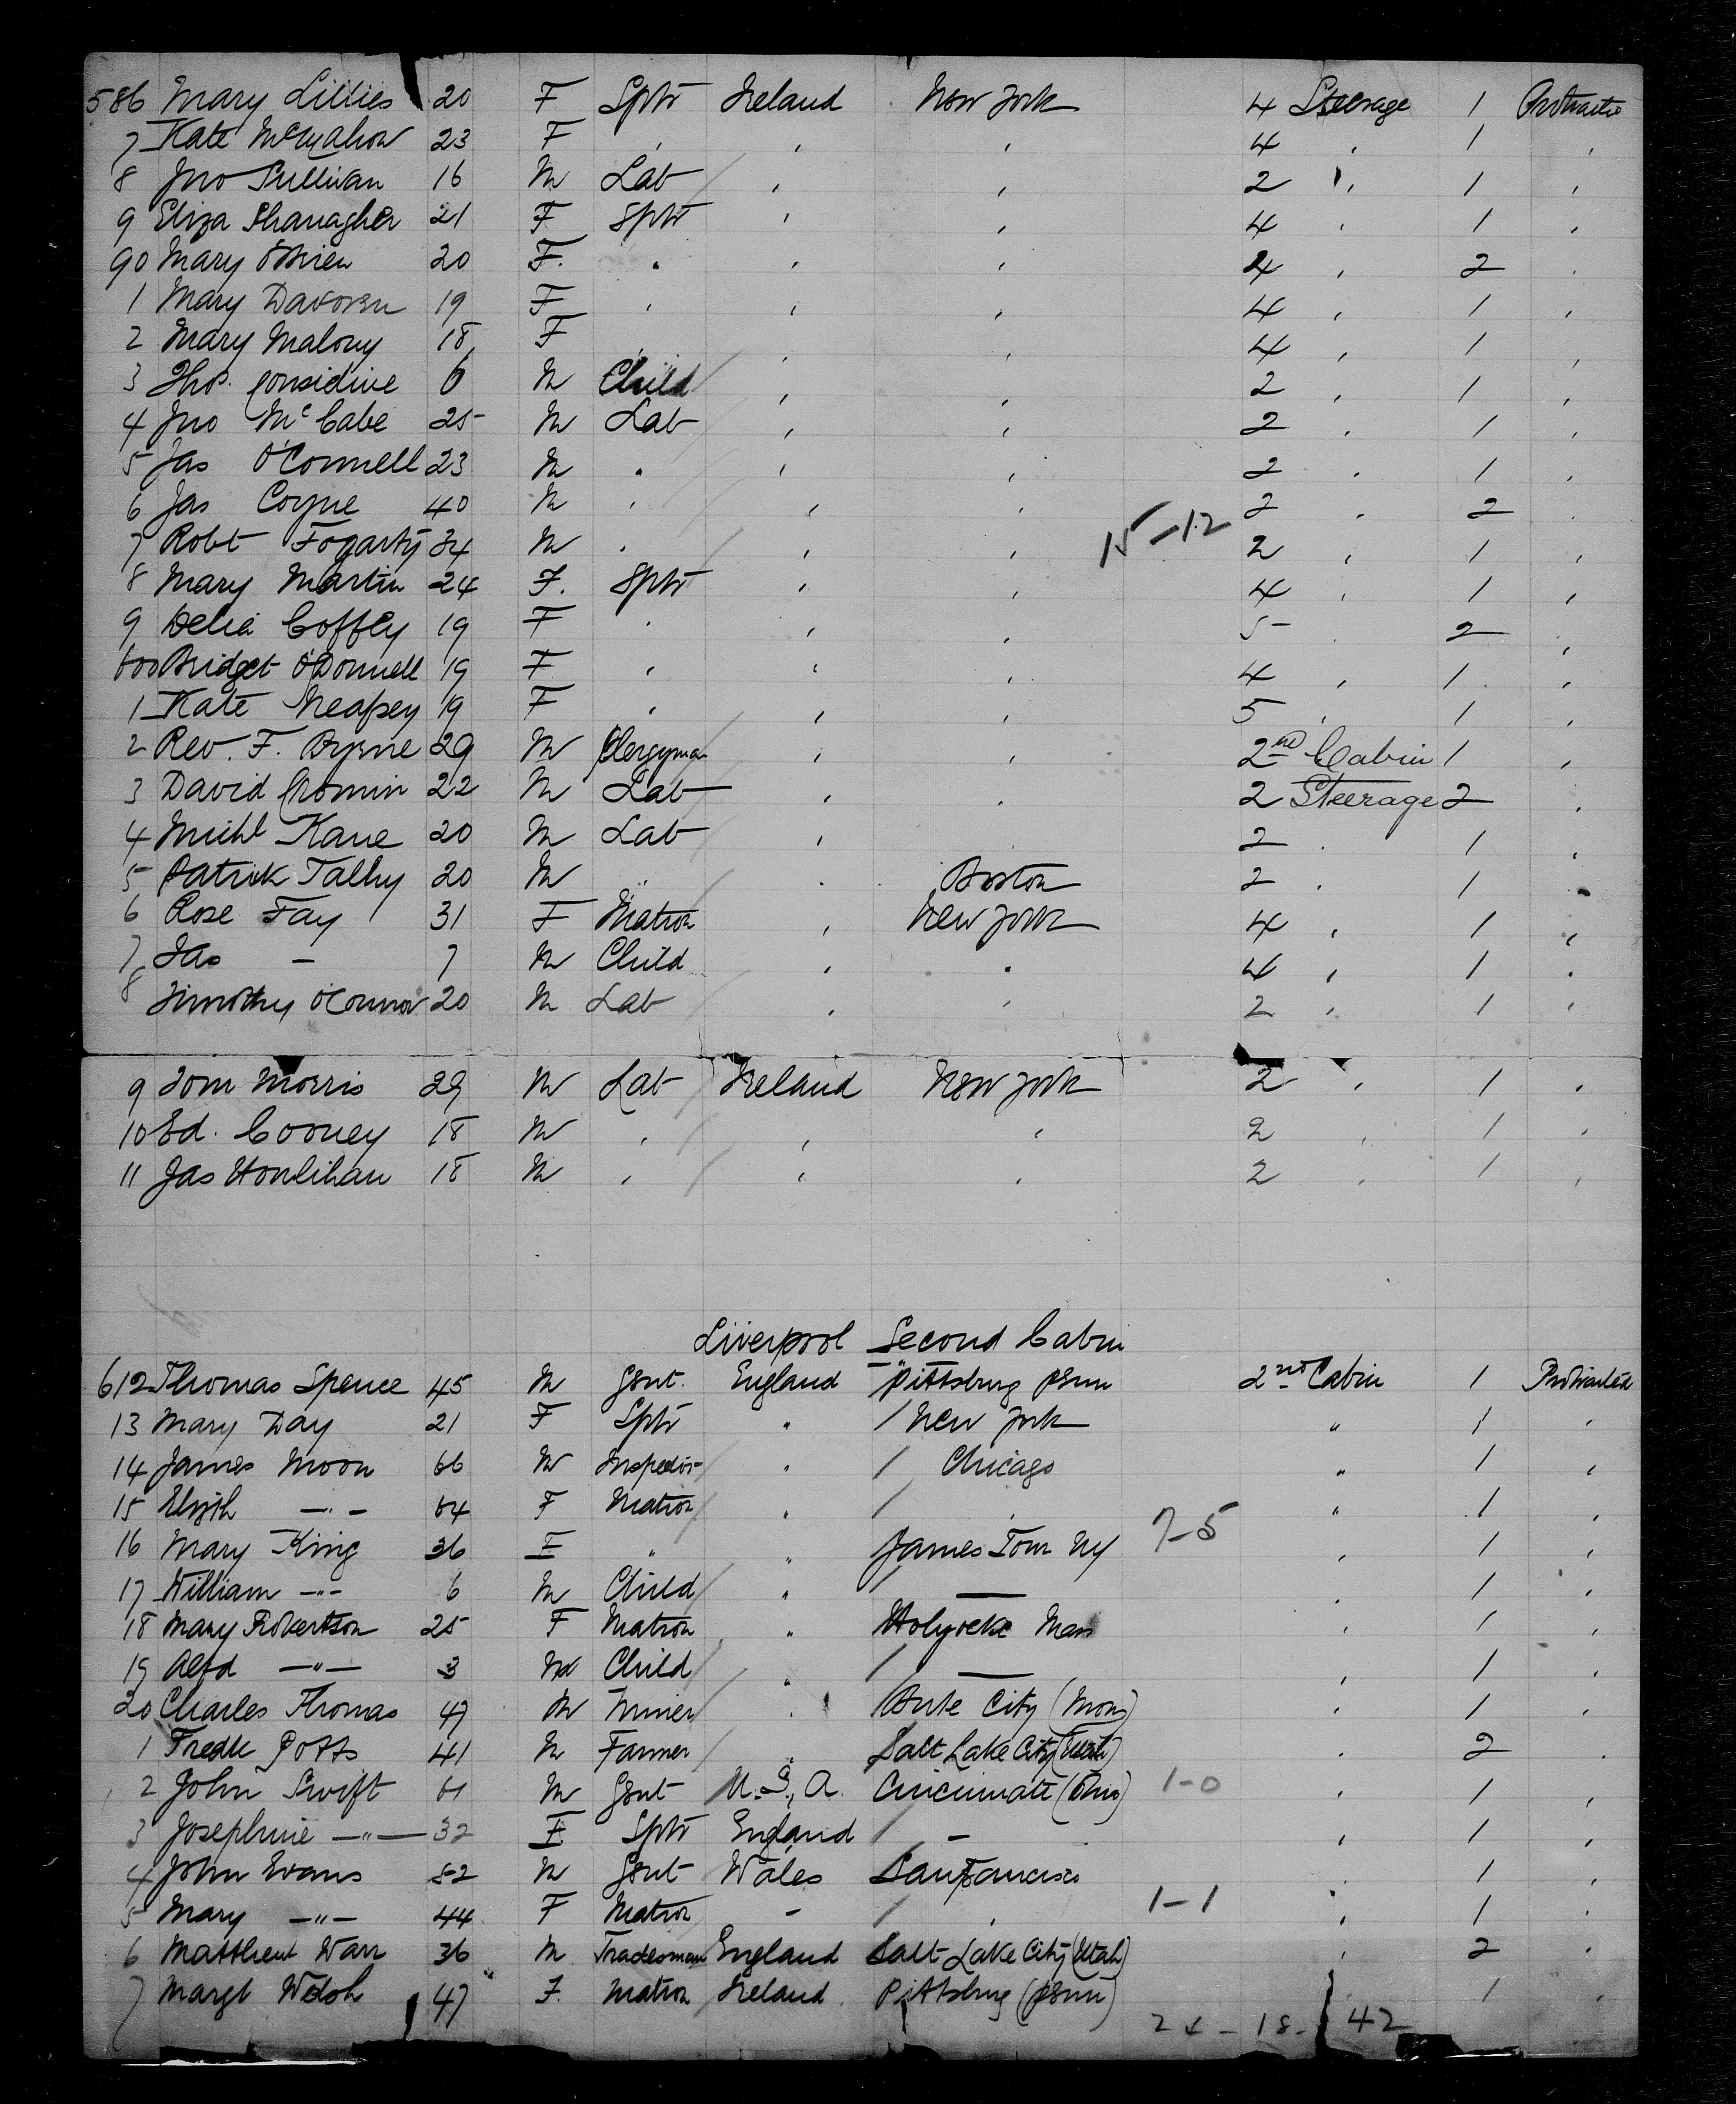 586 Mary Lillies 20 F Sptr Ireland New York 4 Steerage 1 Protracted
7 Kate McMahon 23 F , , , 4 , 1 ,
8 Jno Sullivan 16 M Lab , , 2 , 1 ,
9 Eliza Shanagher 21 F Sptr , , 4 , 1 ,
90 Mary O'Brien 20 F. " , , 4 , 2 ,
1 Mary Davoren 19 F , , , 4 , 1 ,
2 Mary Malony 18 F , , , 4 , 1 ,
3 Thos. Considine 6 M Child , , 2 , 1 ,
4 Jno McCabe 25 M Lab , , 2 , 1 ,
5 Jas O'Connell 23 M " , , 2 , 1 ,
6 Jas Coyne 40 M , , , 2 , 2 ,
7 Robt Fogarty 34 M , , , 15-12 2 , 1 ,
8 Mary Martin 24 F. Sptr , , 4 , 1 ,
9 Delia Coffey 19 F , , , 5 , 2 ,
600 Bridget O'Donnell 19 F , , , 4 , 1 ,
1 Kate Heapey 19 F , , , 5 , 1 ,
2 Rev. F. Byrne 29 M Clergyman , , 2nd Cabin 1 ,
3 David Cronin 22 M Lab , , 2 Steerage 2 ,
4 Michl Kane 20 M Lab , , 2 , 1 ,
5 Patrick Talby 20 M " , Boston 2 , 1 ,
6 Rose Fay 31 F Matron , New York 4 , 1 ,
7 Jas — 7 M Child , , 4 , 1 ,
8 Timothy O'Connor 20 M Lab , , 2 , 1 ,
9 Tom Morris 29 M Lab Ireland New York 2 , 1 ,
10 Ed. Cooney 18 M , , , 2 , 1 ,
11 Jas Houlihan 18 M , , , 2 , 1 ,
Liverpool Second Cabin
612 Thomas Spence 45 M Gent. England Pittsburg Penn 2nd Cabin 1 Protracted
13 Mary Day 21 F Sptr " New York " 1 ,
14 James Moon 66 M Inspector " Chicago " 1 ,
15 Elizth —"— 64 F Matron " , " 1 ,
16 Mary King 36 F " " James Town NY 7-5 , 1 ,
17 William —"— 6 M Child " — , 1 ,
18 Mary Robertson 25 F Matron " Holyoeke Mass , 1 ,
19 Alfd —"— 3 M Child " — , 1 ,
20 Charles Thomas 47 M Miner , Bute City (Mon) , 1 ,
1 Fredk Potts 41 M Farmer , Salt Lake City (Utah) , 2 ,
2 John Swift 61 M Gent U.S.A. Cincinnate (Ohio) 1-0 , 1 ,
3 Josephine —"— 32 F Sptr England — , 1 ,
4 John Evans 52 M Gent Wales San Francisco , 1 ,
5 Mary —"— 44 F Matron — , 1-1 , 1 ,
6 Matthew Warr 36 M Tradesman England Salt Lake City (Utah) , 2 ,
7 Margt Welsh 47 F. Matron Ireland Pittsburg (Penn) , 1 ,
24-18- 42